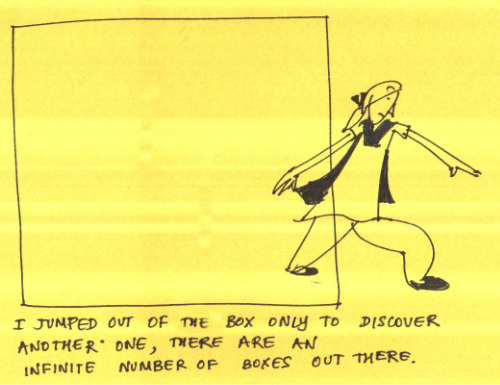 I JUMPED OUT OF THE BOX ONLY TO DISCOVER
ANOTHER ONE, THERE ARE AN
INFINITE NUMBER OF BOXES OUT THERE.